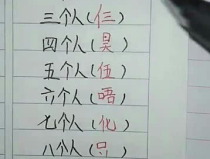 三个人(仨)
四个人(吴)
五个人(伍)
六个人(唔)
七个人(化)
八个人(只)